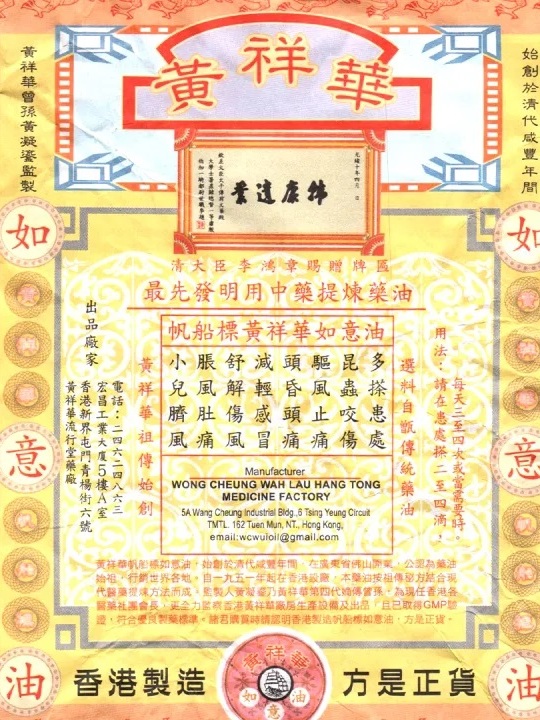 黃祥華
始創於清代咸豐年間
黃祥華曾孫黃凝鎏監製
清大臣李鴻章賜贈牌匾
最先發明用中藥提煉藥油
帆船標黃祥華如意油
多搽患處
昆蟲咬傷
驅風止痛
頭昏頭痛
減輕感冒
舒解傷風
脹風肚痛
小兒臍風
用法：請在患處搽二至四滴，
每天三至四次或當需要時。
選料自甑傳統藥油
黃祥華祖傳始創
出品廠家
電話：二四六二四八六三
宏昌工業大廈5樓A室
香港新界屯門青楊街六號
黃祥華流行堂藥廠
Manufacturer
WONG CHEUNG WAH LAU HANG TONG
MEDICINE FACTORY
5A Wang Cheung Industrial Bldg.,6 Tsing Yeung Circuit
TMTL. 162 Tuen Mun, NT., Hong Kong,
email:wcwuioil@gmail.com
黃祥華帆船標如意油，始創於清代咸豐年間，在廣東省佛山開業，公認為藥油
始祖，行銷世界各地，自一九五一年起在香港設廠，本藥油按祖傳秘方結合現
代醫藥提煉方法而成。監製人黃凝鎏乃黃祥華第四代嫡傳曾孫，為現任香港各
醫藥社團會長，更全力監察香港黃祥華廠房生產設備及出品，且已取得GMP認
證，符合優良製藥標準。諸君購買時請認明香港製造帆船標如意油，方是正貨。
如
意
油
如
意
油
香港製造
黃祥華
如意油
方是正貨